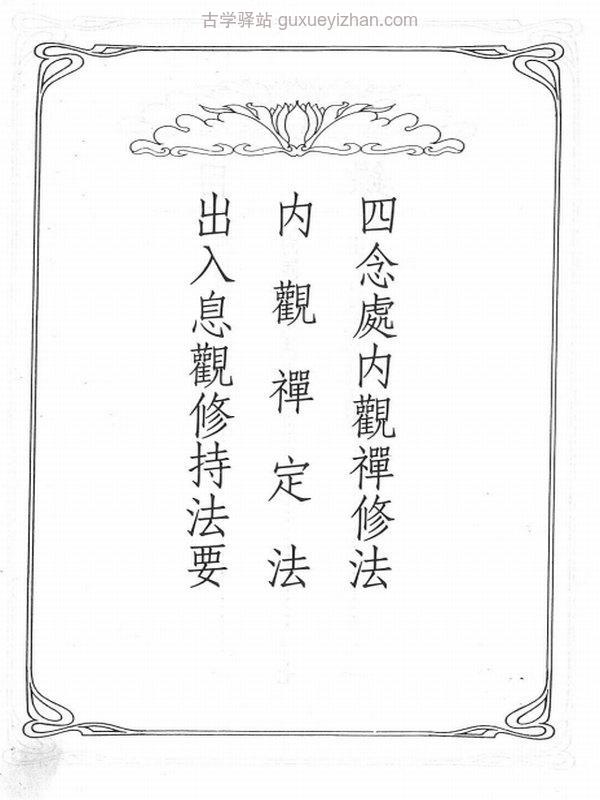 古学驿站 guxueyizhan.com
四念處内觀禪修法
内觀禪定法
出入息觀修持法要